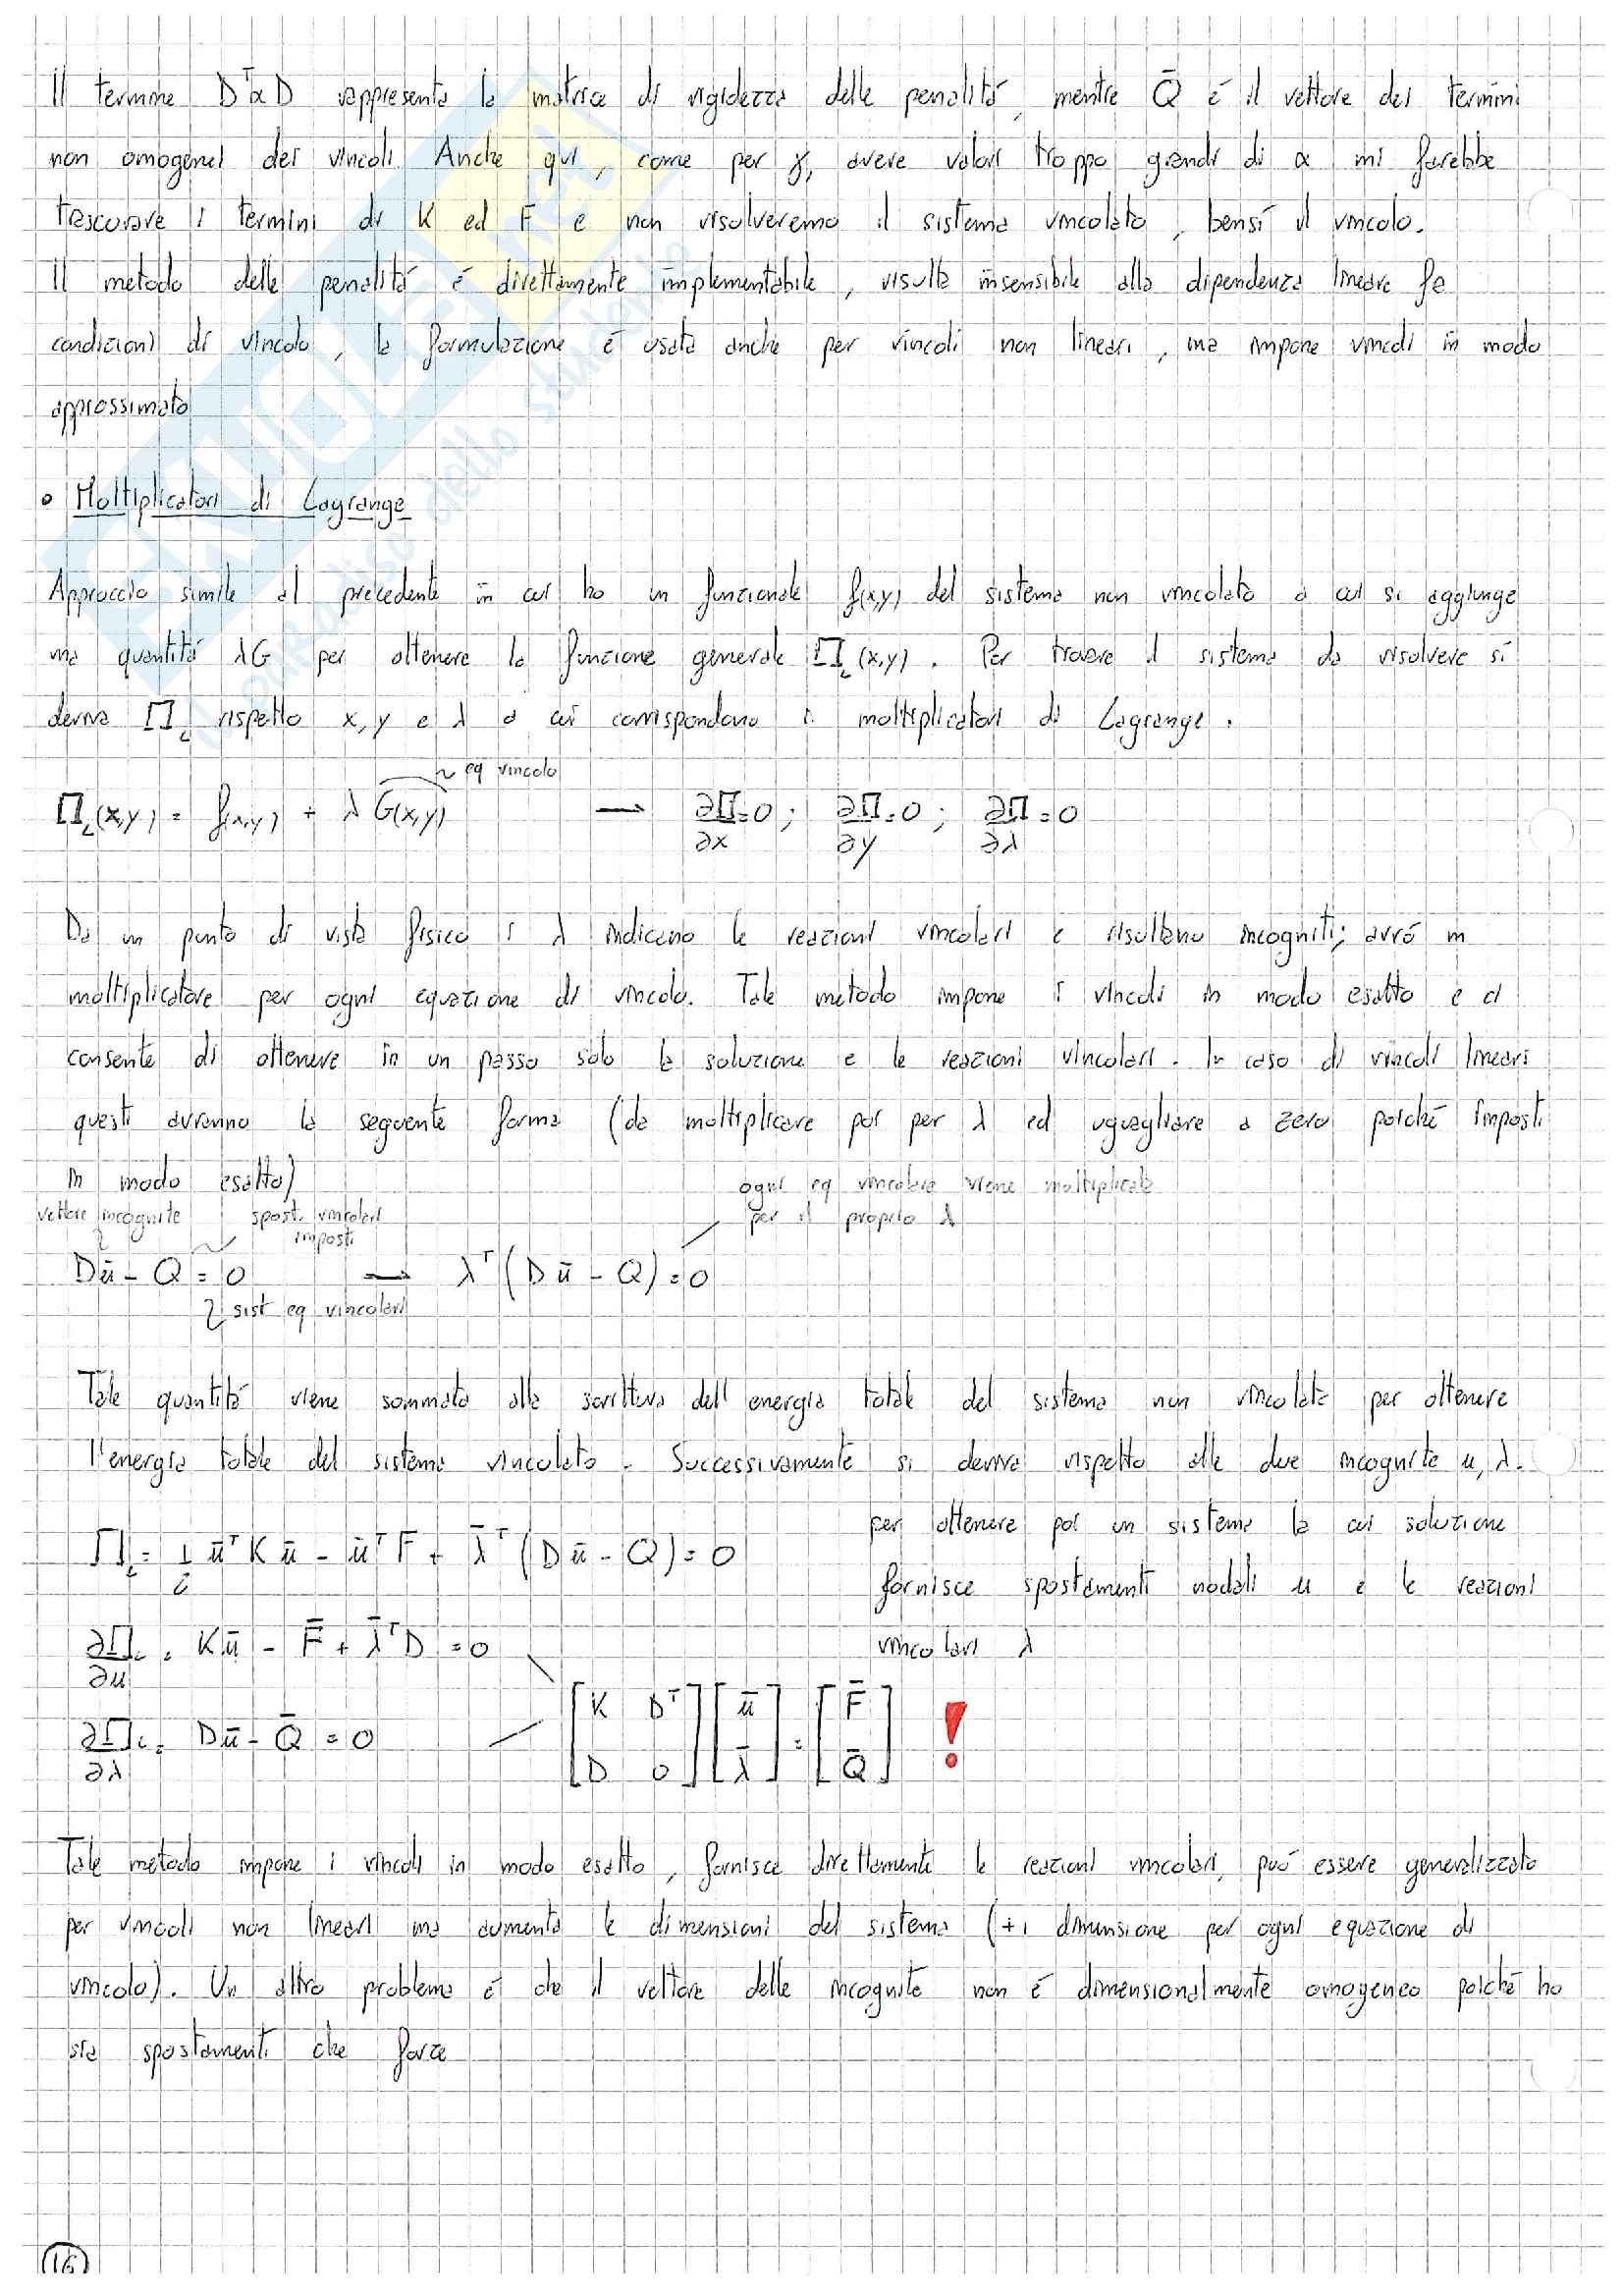 Il termine DᵀαD rappresenta la matrice di rigidezza delle penalità, mentre Q̄ é il vettore dei termini
non omogenei dei vincoli. Anche qui, come per γ, avere valori troppo grandi di α mi farebbe
trascurare i termini di K ed F e non risolveremo il sistema vincolato, bensí il vincolo.
Il metodo delle penalitá é direttamente implementabile, risulta insensibile alla dipendenza lineare fe
condizioni di vincolo, la formulazione é usata anche per vincoli non lineari, ma impone vincoli in modo
approssimato
• Moltiplicatori di Lagrange
Approccio simile al precedente in cui ho un funzionale f(x,y) del sistema non vincolato a cui si aggiunge
una quantitá λG per ottenere la funzione generale Π_L (x,y). Per trovare il sistema da risolvere si
deriva Π_L rispetto x, y e λ a cui corrispondono i moltiplicatori di Lagrange.
eq vincolo
Π_L(x,y) = f(x,y) + λ G(x,y) → ∂Π/∂x = 0 ; ∂Π/∂y = 0 ; ∂Π/∂λ = 0
Da un punto di vista fisico i λ indicano le reazioni vincolari e risultano incogniti; avró un
moltiplicatore per ogni equazione di vincolo. Tale metodo impone i vincoli in modo esatto e ci
consente di ottenere in un passo solo la soluzione e le reazioni vincolari. In caso di vincoli lineari
questi avranno la seguente forma (da moltiplicare poi per λ ed uguagliare a zero poiché imposti
in modo esatto)
ogni eq vincolare viene moltiplicata
per il proprio λ
vettore incognite spost. vincolari
imposti
Dū - Q = 0 → λᵀ(Dū - Q) = 0
sist eq vincolari
Tale quantitá viene sommata alla scrittura dell'energia totale del sistema non vincolato per ottenere
l'energia totale del sistema vincolato. Successivamente si deriva rispetto alle due incognite u, λ.
per ottenere poi un sistema la cui soluzione
Π_L = 1/2 ūᵀKū - ūᵀF + λ̄ᵀ(Dū - Q) = 0
fornisce spostamenti nodali u e le reazioni
vincolari λ
∂Π_L/∂u = Kū - F̄ + λ̄ᵀD = 0
∂Π_L/∂λ = Dū - Q̄ = 0
[K Dᵀ] [ū] = [F̄] !
[D 0] [λ̄] [Q̄]
Tale metodo impone i vincoli in modo esatto, fornisce direttamente le reazioni vincolari, puó essere generalizzato
per vincoli non lineari ma aumenta le dimensioni del sistema (+1 dimensione per ogni equazione di
vincolo). Un altro problema é che il vettore delle incognite non é dimensionalmente omogeneo poiché ho
sia spostamenti che forze
16